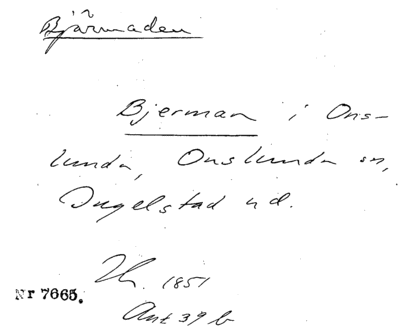 Bjärmaden
Bjerman i Ons-
lunda, Onslunda sn,
Ingelstad hd.
1851
Nr 7665.
Ant 39 b